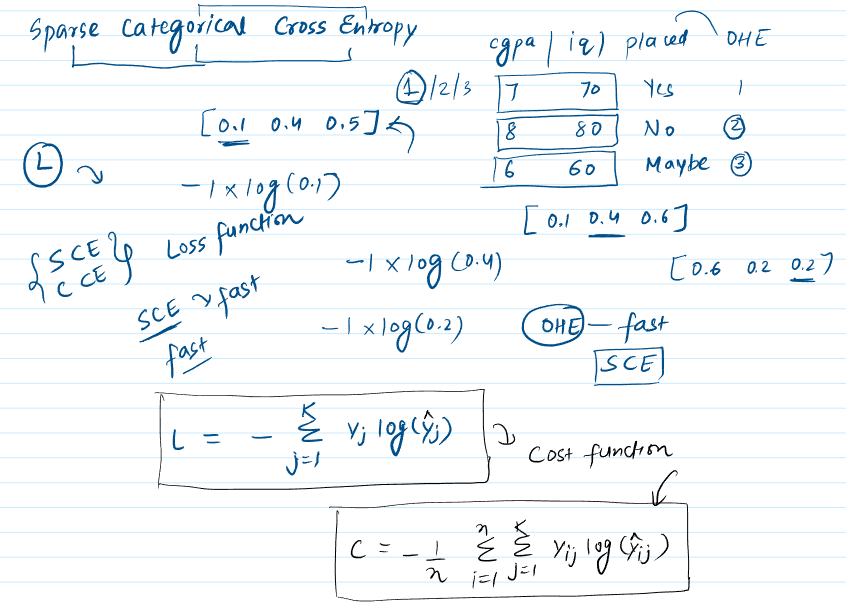 Sparse Categorical Cross Entropy
cgpa | iq | placed OHE
1/2/3 7 70 Yes 1
8 80 No 2
6 60 Maybe 3
[0.1 0.4 0.5]
L
-1 x log(0.1)
[0.1 0.4 0.6]
{SCE
CCE}
Loss function
-1 x log(0.4)
[0.6 0.2 0.2]
SCE → fast
fast
-1 x log(0.2)
OHE - fast
SCE
L = - Σ_{j=1}^{K} Yj log(Ŷj)
Cost function
C = - 1/n Σ_{i=1}^{n} Σ_{j=1}^{K} Yij log(Ŷij)